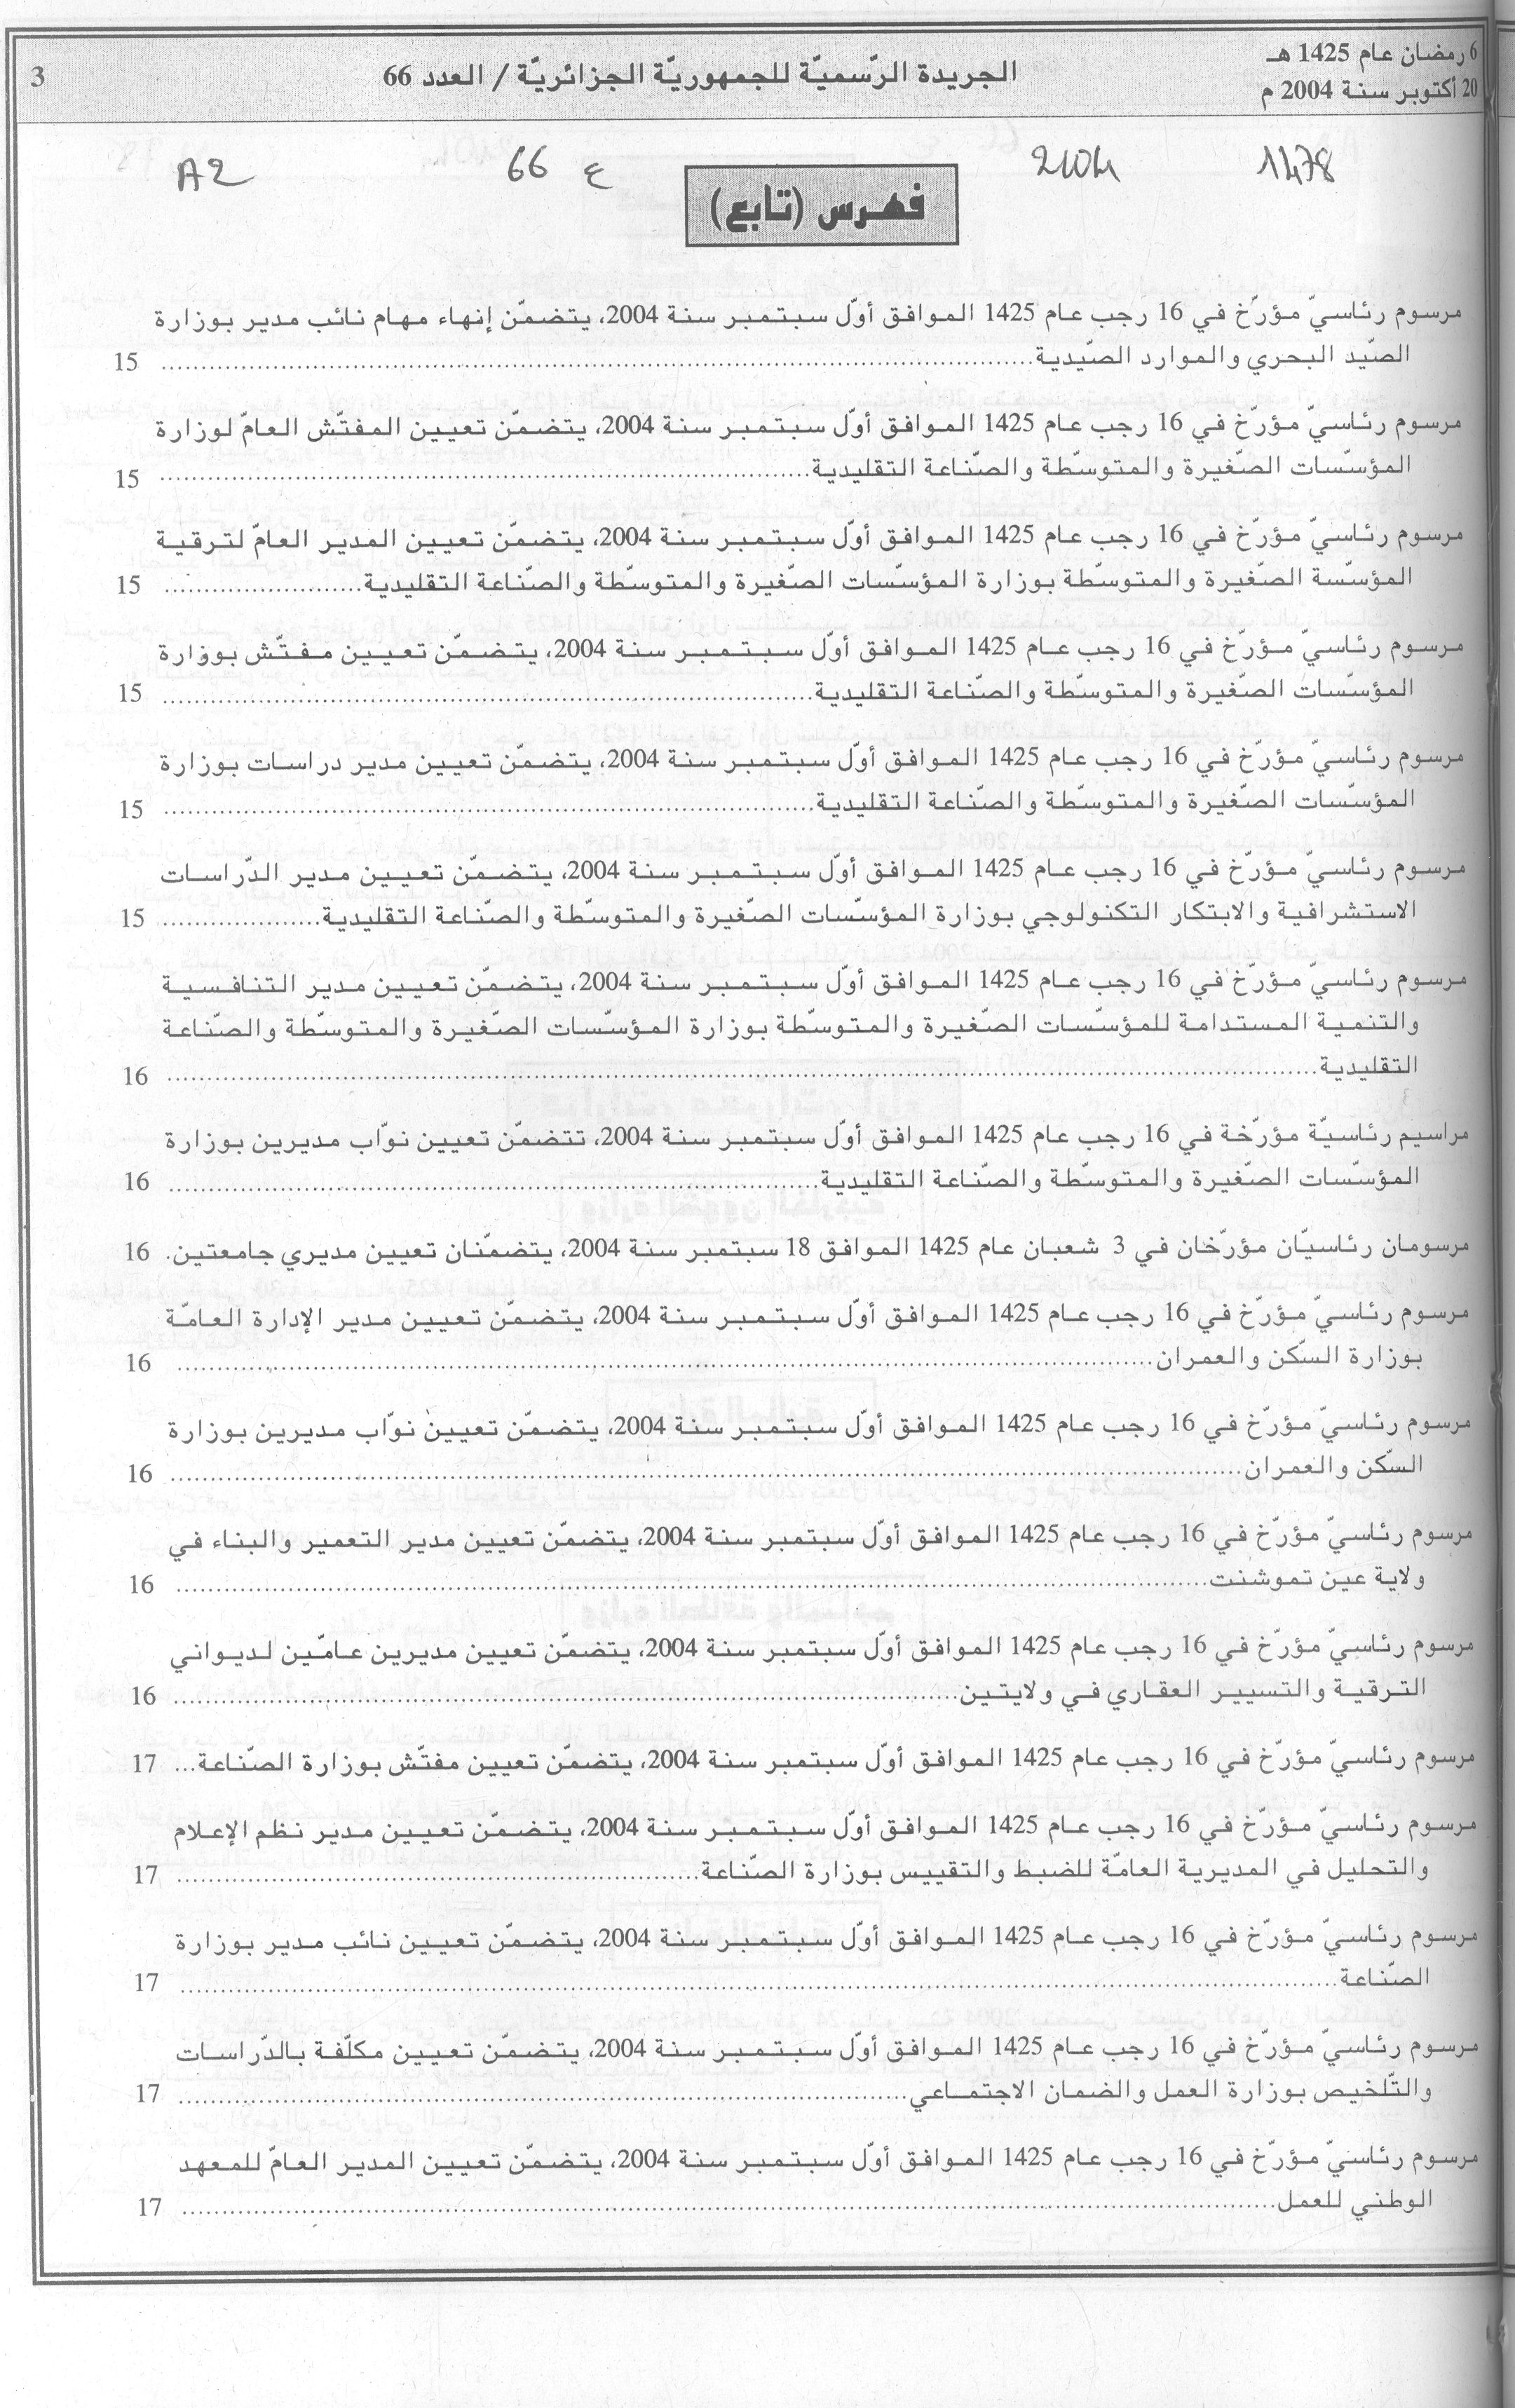 6 رمضان عام 1425 هـ
20 أكتوبر سنة 2004 م
الجريدة الرّسميّة للجمهوريّة الجزائريّة / العدد 66
3
1478
66 ع
A2
فهرس (تابع)
مرسوم رئاسيّ مؤرّخ في 16 رجب عام 1425 الموافق أوّل سبتمبر سنة 2004، يتضمّن إنهاء مهام نائب مدير بوزارة
الصّيد البحري والموارد الصّيدية ........ 15
مرسوم رئاسيّ مؤرّخ في 16 رجب عام 1425 الموافق أوّل سبتمبر سنة 2004، يتضمّن تعيين المفتّش العامّ لوزارة
المؤسّسات الصّغيرة والمتوسّطة والصّناعة التقليدية ........ 15
مرسوم رئاسيّ مؤرّخ في 16 رجب عام 1425 الموافق أوّل سبتمبر سنة 2004، يتضمّن تعيين المدير العامّ لترقية
المؤسّسة الصّغيرة والمتوسّطة بوزارة المؤسّسات الصّغيرة والمتوسّطة والصّناعة التقليدية ........ 15
مرسوم رئاسيّ مؤرّخ في 16 رجب عام 1425 الموافق أوّل سبتمبر سنة 2004، يتضمّن تعيين مفتّش بوزارة
المؤسّسات الصّغيرة والمتوسّطة والصّناعة التقليدية ........ 15
مرسوم رئاسيّ مؤرّخ في 16 رجب عام 1425 الموافق أوّل سبتمبر سنة 2004، يتضمّن تعيين مدير دراسات بوزارة
المؤسّسات الصّغيرة والمتوسّطة والصّناعة التقليدية ........ 15
مرسوم رئاسيّ مؤرّخ في 16 رجب عام 1425 الموافق أوّل سبتمبر سنة 2004، يتضمّن تعيين مدير الدّراسات
الاستشرافية والابتكار التكنولوجي بوزارة المؤسّسات الصّغيرة والمتوسّطة والصّناعة التقليدية ........ 15
مرسوم رئاسيّ مؤرّخ في 16 رجب عام 1425 الموافق أوّل سبتمبر سنة 2004، يتضمّن تعيين مدير التنافسية
والتنمية المستدامة للمؤسّسات الصّغيرة والمتوسّطة بوزارة المؤسّسات الصّغيرة والمتوسّطة والصّناعة
التقليدية ........ 16
مراسيم رئاسيّة مؤرّخة في 16 رجب عام 1425 الموافق أوّل سبتمبر سنة 2004، تتضمّن تعيين نوّاب مديرين بوزارة
المؤسّسات الصّغيرة والمتوسّطة والصّناعة التقليدية ........ 16
مرسومان رئاسيّان مؤرّخان في 3 شعبان عام 1425 الموافق 18 سبتمبر سنة 2004، يتضمّنان تعيين مديري جامعتين. 16
مرسوم رئاسيّ مؤرّخ في 16 رجب عام 1425 الموافق أوّل سبتمبر سنة 2004، يتضمّن تعيين مدير الإدارة العامّة
بوزارة السّكن والعمران ........ 16
مرسوم رئاسيّ مؤرّخ في 16 رجب عام 1425 الموافق أوّل سبتمبر سنة 2004، يتضمّن تعيين نوّاب مديرين بوزارة
السّكن والعمران ........ 16
مرسوم رئاسيّ مؤرّخ في 16 رجب عام 1425 الموافق أوّل سبتمبر سنة 2004، يتضمّن تعيين مدير التعمير والبناء في
ولاية عين تموشنت ........ 16
مرسوم رئاسيّ مؤرّخ في 16 رجب عام 1425 الموافق أوّل سبتمبر سنة 2004، يتضمّن تعيين مديرين عامّين لديواني
الترقية والتسيير العقاري في ولايتين ........ 16
مرسوم رئاسيّ مؤرّخ في 16 رجب عام 1425 الموافق أوّل سبتمبر سنة 2004، يتضمّن تعيين مفتّش بوزارة الصّناعة... 17
مرسوم رئاسيّ مؤرّخ في 16 رجب عام 1425 الموافق أوّل سبتمبر سنة 2004، يتضمّن تعيين مدير نظم الإعلام
والتحليل في المديرية العامّة للضبط والتقييس بوزارة الصّناعة ........ 17
مرسوم رئاسيّ مؤرّخ في 16 رجب عام 1425 الموافق أوّل سبتمبر سنة 2004، يتضمّن تعيين نائب مدير بوزارة
الصّناعة ........ 17
مرسوم رئاسيّ مؤرّخ في 16 رجب عام 1425 الموافق أوّل سبتمبر سنة 2004، يتضمّن تعيين مكلّفة بالدّراسات
والتّلخيص بوزارة العمل والضمان الاجتماعي ........ 17
مرسوم رئاسيّ مؤرّخ في 16 رجب عام 1425 الموافق أوّل سبتمبر سنة 2004، يتضمّن تعيين المدير العامّ للمعهد
الوطني للعمل ........ 17